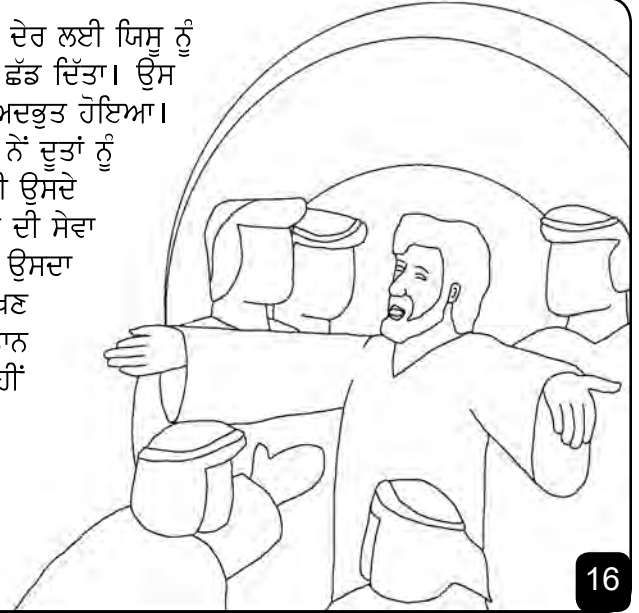 ਦੇਰ ਲਈ ਯਿਸੂ ਨੂੰ
ਛੱਡ ਦਿੱਤਾ। ਉਸ
ਅਦਭੁਤ ਹੋਇਆ।
ਨੇਂ ਦੂਤਾਂ ਨੂੰ
ਉਸਦੇ
ਦੀ ਸੇਵਾ
ਉਸਦਾ
16